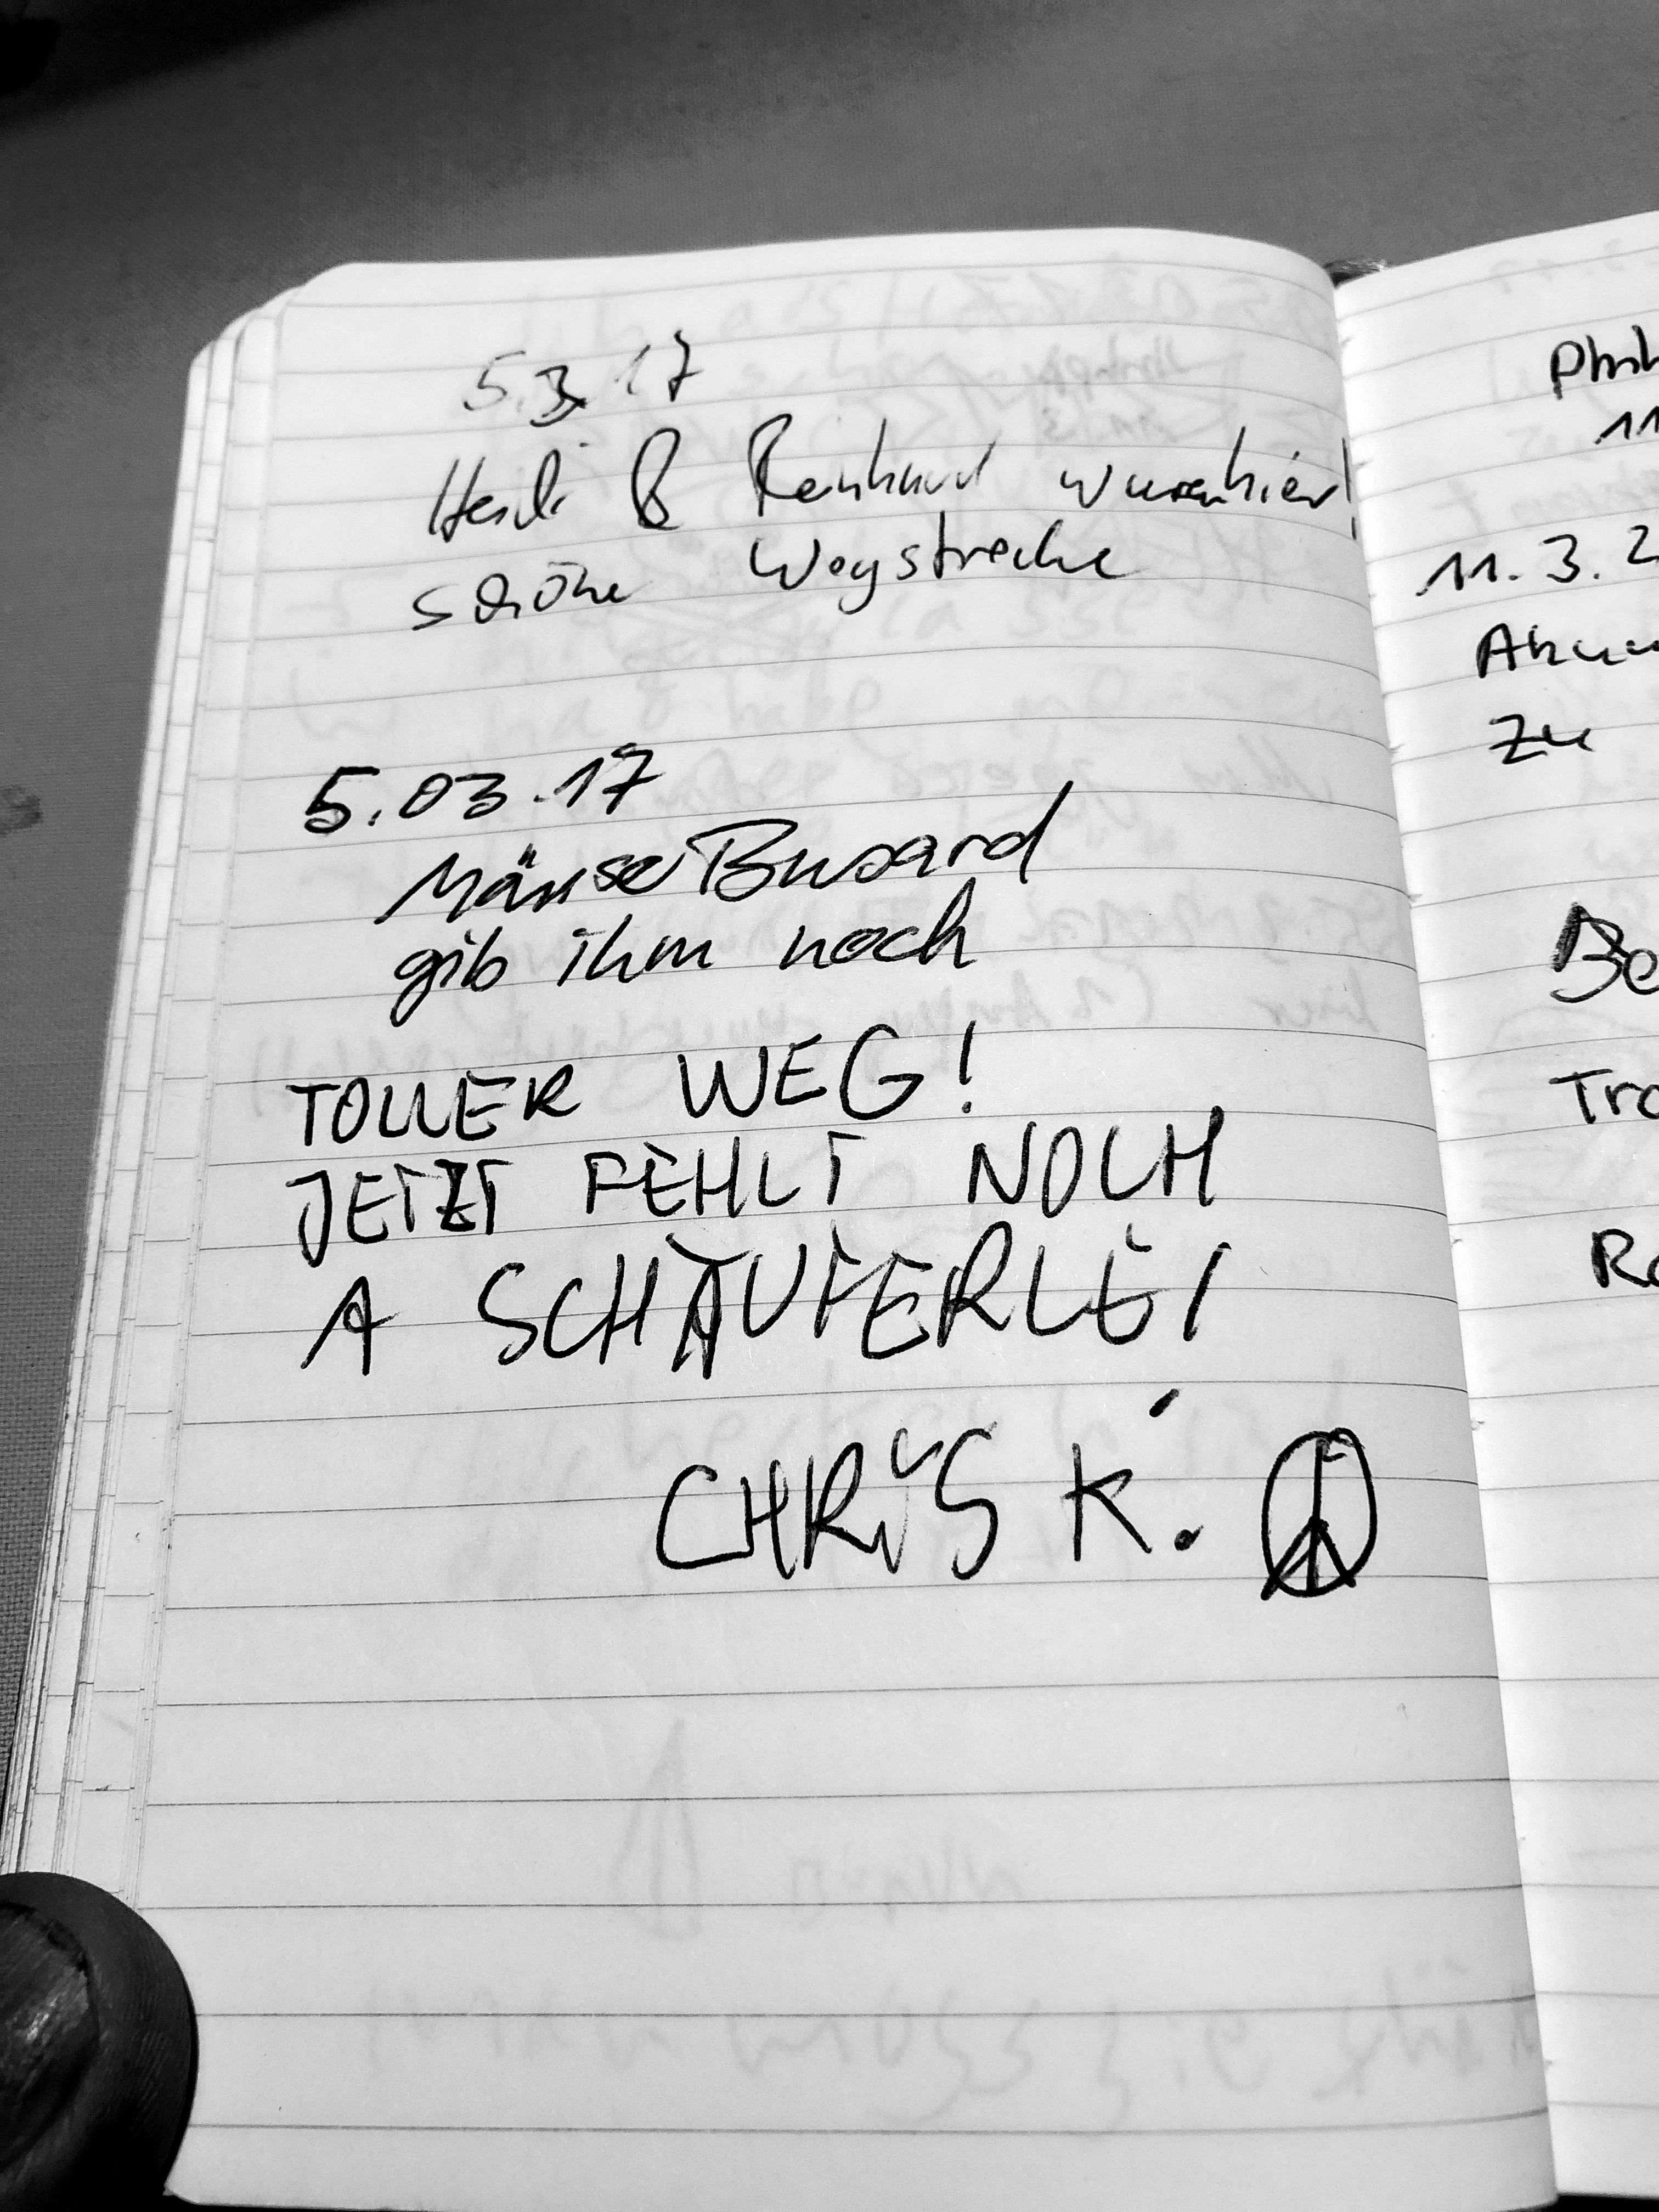 5.3.17
Heidi & Reinhard waren hier
schöne Wegstrecke
5.03.17
MäuseBussard
gib ihm noch
TOLLER WEG!
JETZT FEHLT NOCH
A SCHÄUFERLE!
CHRIS K.
11
11.3.2
Zu
Be
Tra